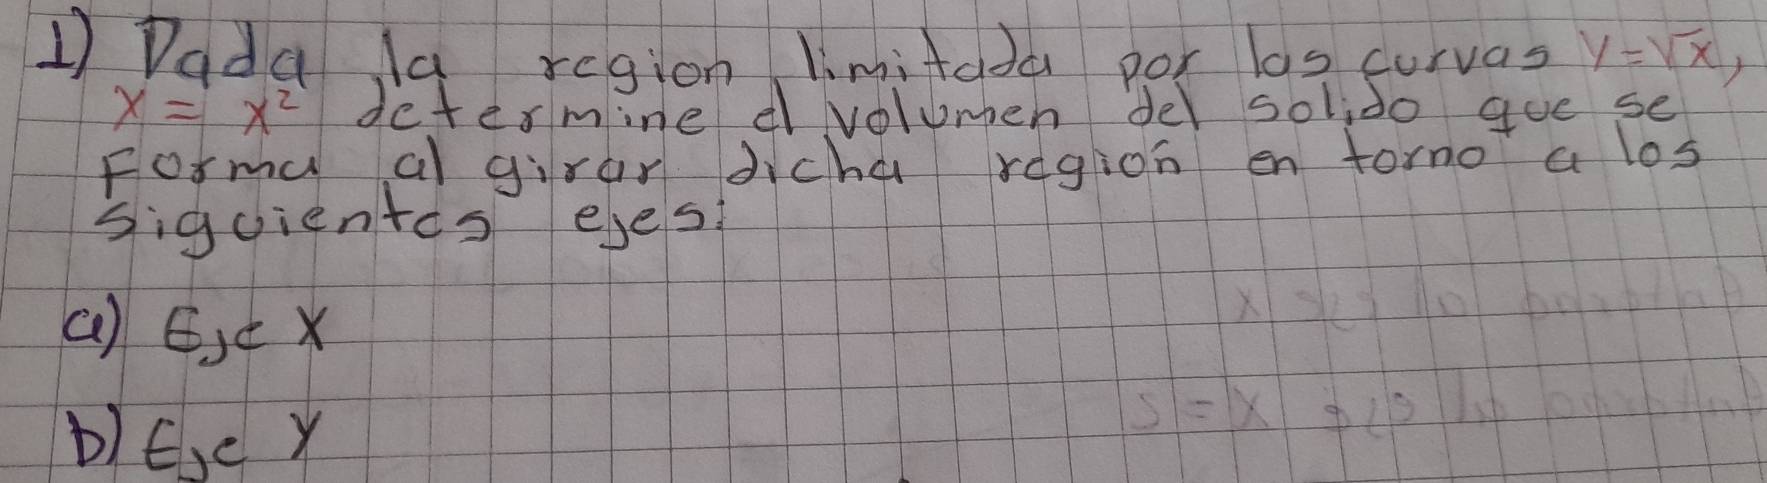 1) Dada la region limitada por las curvas y=√x,
x = x² determine el volumen del solido que se
Forma al girar dicha región en torno a los
siguientes ejes:
a) Eje X
b) Eje y